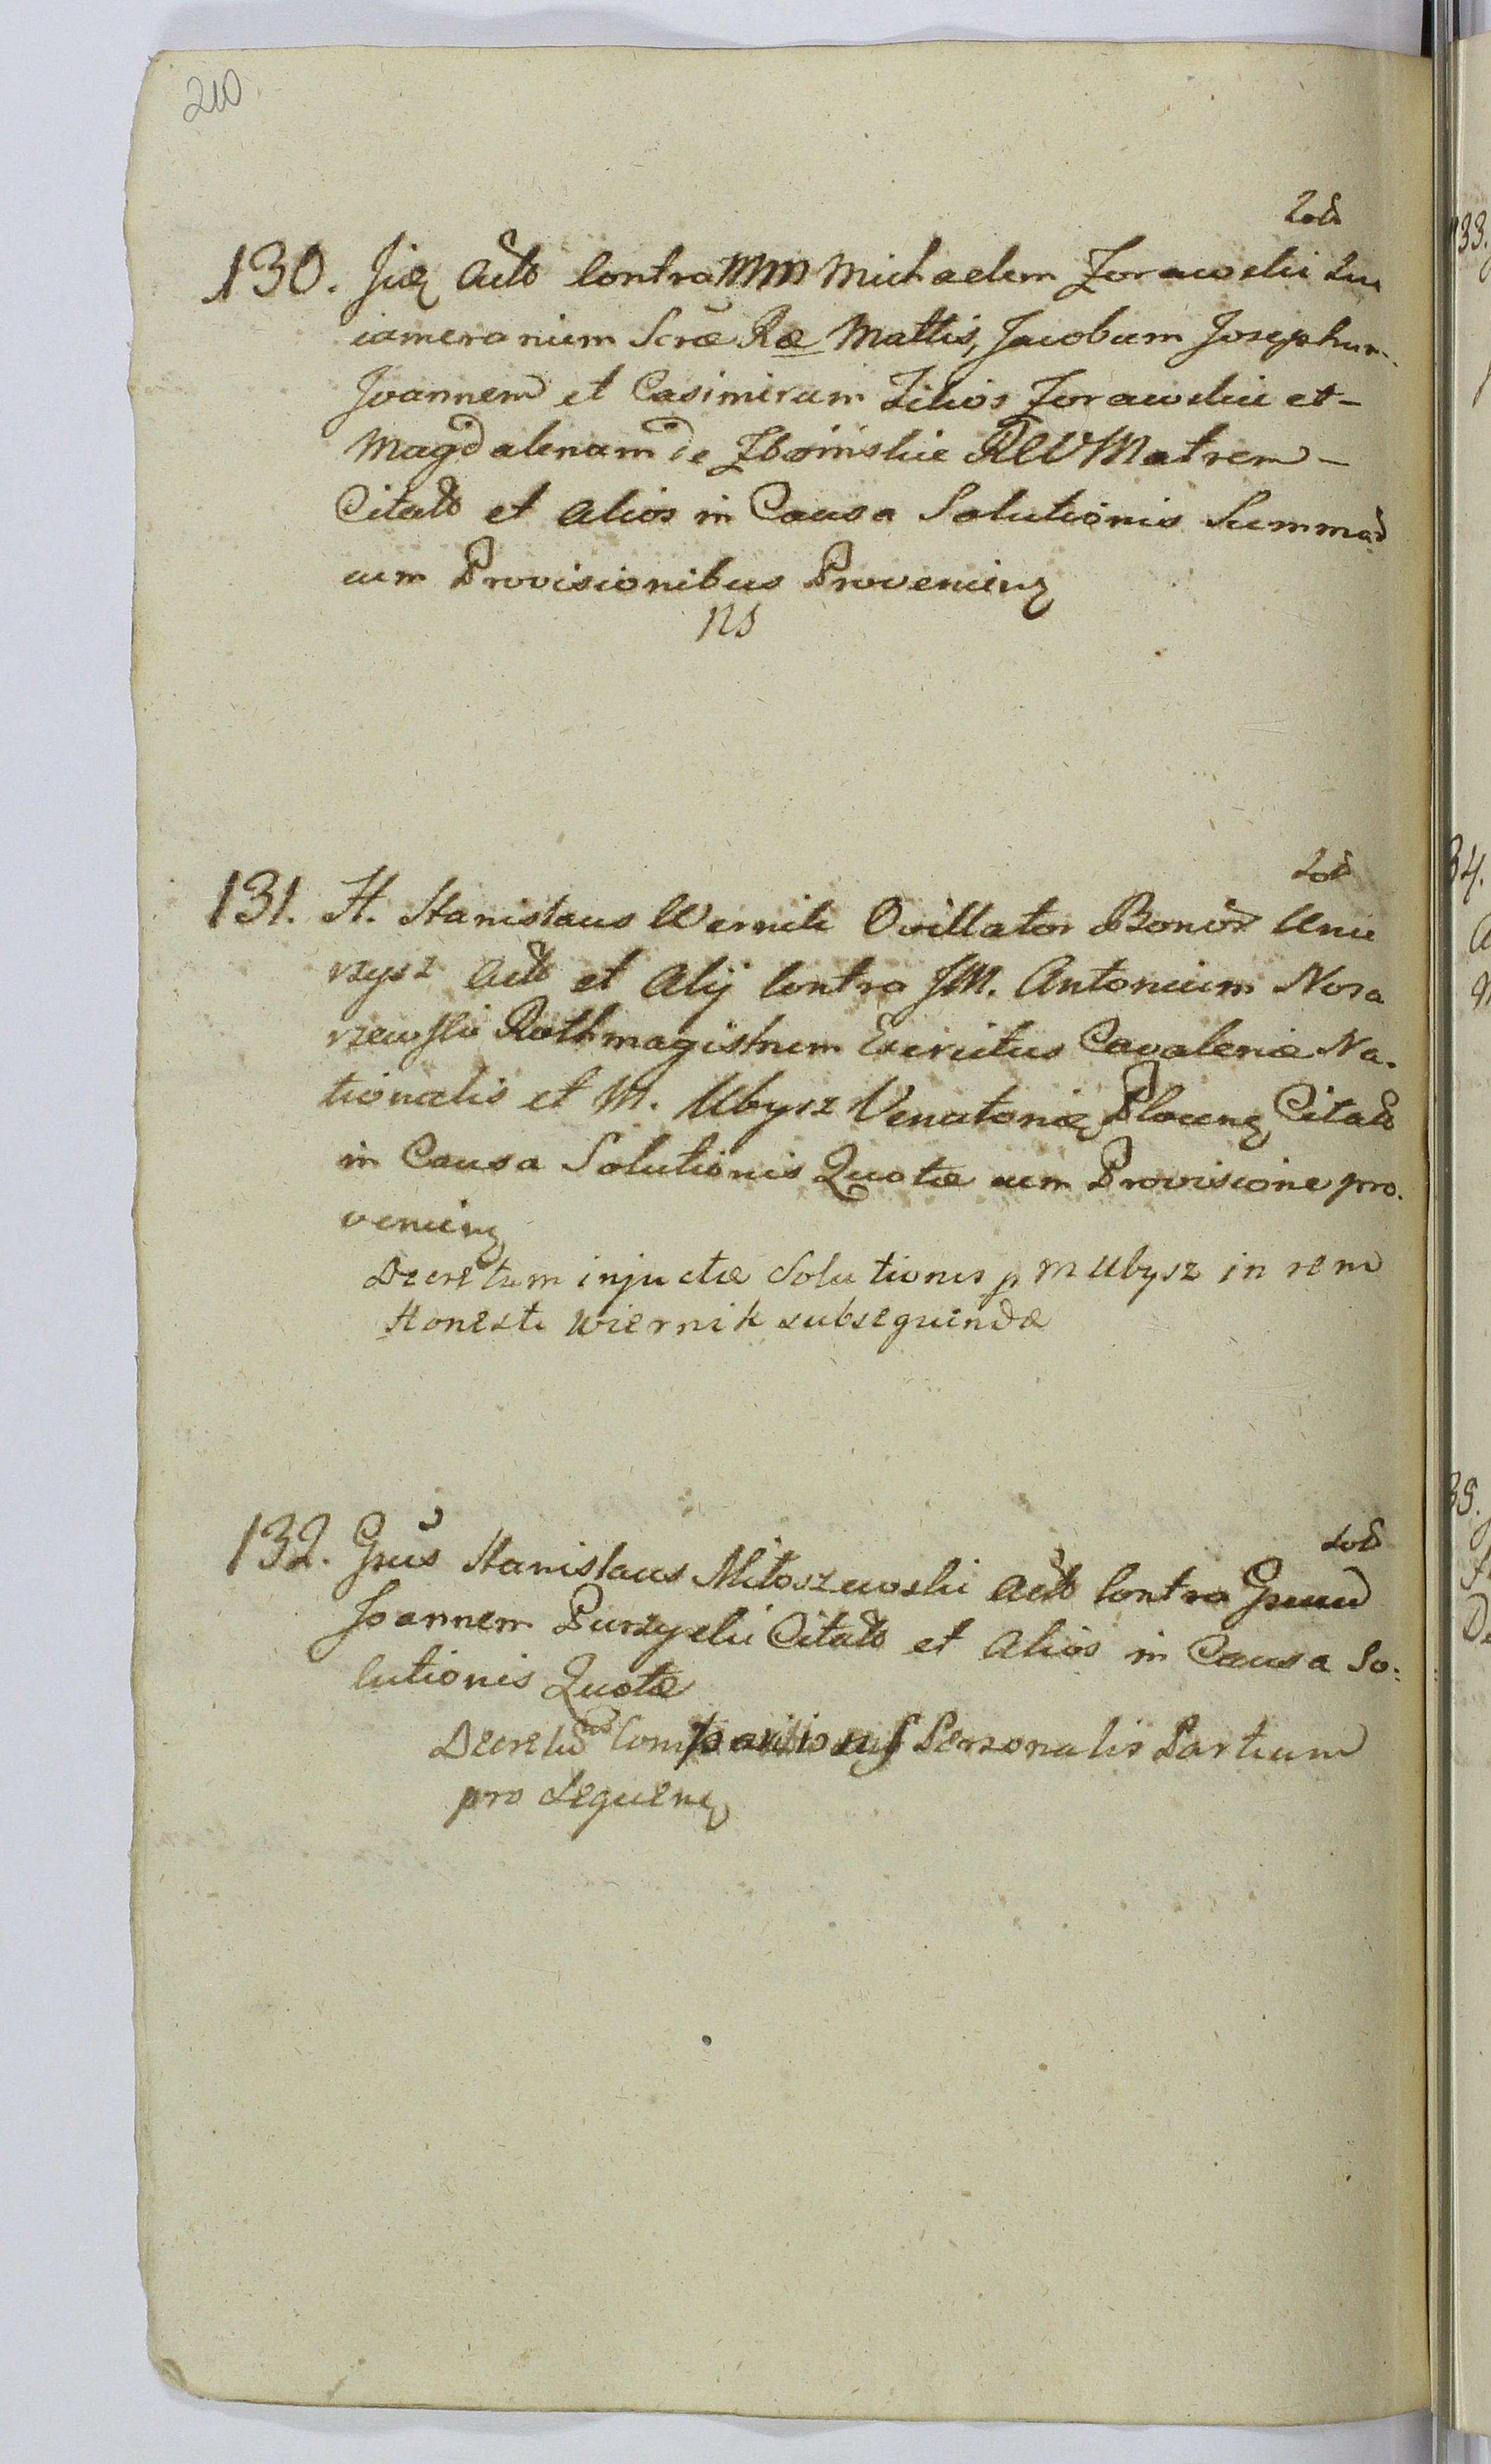 210
130. Ji⁊ Actō Contra MM Michaelem Zorawski Suc
camerarium Scræ Ræ Mattis, Jacobum Josephum
Joannem et Casimirum Filios Zorawskie et –
Magdalenam de Zboinskie Matrem –
Citatō et alios in Causa Solutionis Summaū
cum Provisionibus Provenien⁊
NS
131. H. Stanislaus Wernik Ovillator Bonor Unie
rzysz Actō et Alij Contra JM. Antonium Nosa
rzewski Rothmagistrum Exercitus Cavaleriæ Na-
tionalis et M. Ubysz Venatoriæ Plocen⁊ Citatō
in Causa Solutionis Quotæ cum Provisione pro-
venien⁊
Decretum injuctæ Solutionis p M Ubysz in rem
Honesti Wiernik subsequendæ
132. Gnūs Stanislaus Miłoszewski Actō Contra Gnum
Joannem Purzycki Citatō et Alios in Causa So-
lutionis Quotæ
Decretū Comparitionis Personalis Partium
pro Sequen⁊
133.
34.
35.